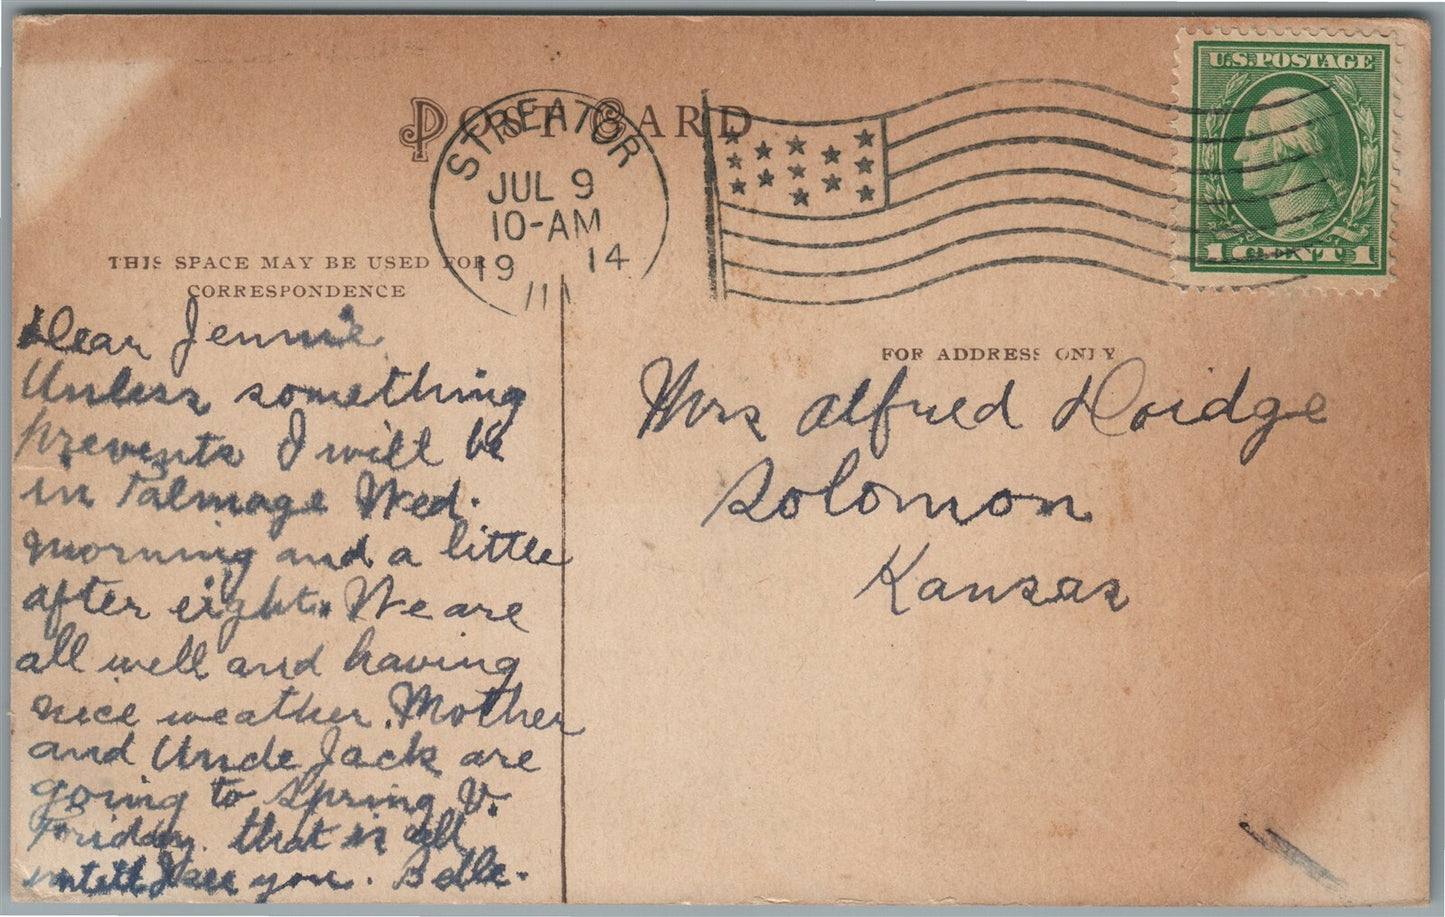 POST CARD
STREATOR
JUL 9
10-AM
19 14
ILL
U.S. POSTAGE
1 CENT 1
THIS SPACE MAY BE USED FOR
CORRESPONDENCE
FOR ADDRESS ONLY
Dear Jennie
Unless something
prevents I will be
in Talmage Wed.
morning and a little
after eight. We are
all well and having
nice weather. Mother
and Uncle Jack are
going to Spring V.
Friday. that is all
untill I see you. Belle.
Mrs Alfred Doidge
Solomon
Kansas